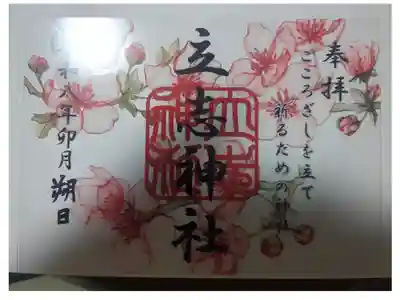 奉拝
こころざしを立て
祈るための神社
立志神社
年卯月朔日